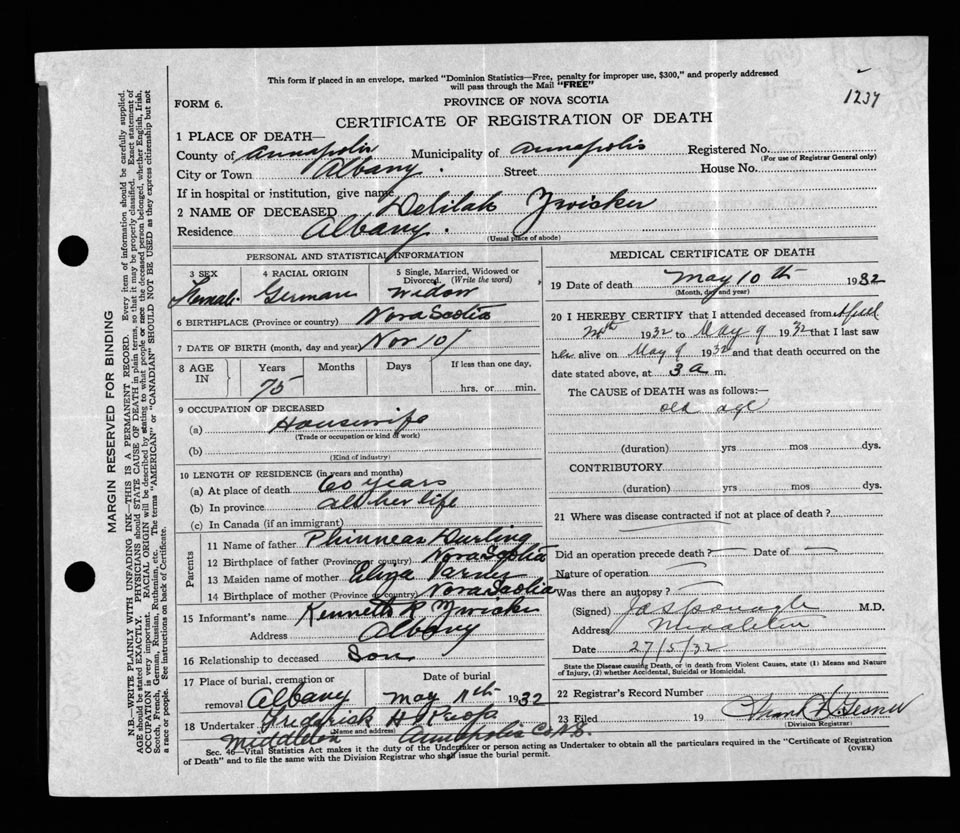 This form if placed in an envelope, marked "Dominion Statistics—Free, penalty for improper use, $300," and properly addressed
will pass through the Mail "FREE"
1237
FORM 6.
PROVINCE OF NOVA SCOTIA
CERTIFICATE OF REGISTRATION OF DEATH
1 PLACE OF DEATH—
County of Annapolis Municipality of Annapolis Registered No.
(For use of Registrar General only)
City or Town Albany. Street House No.
If in hospital or institution, give name
2 NAME OF DECEASED Delilah Zwicker
Residence Albany.
(Usual place of abode)
PERSONAL AND STATISTICAL INFORMATION
3 SEX 4 RACIAL ORIGIN 5 Single, Married, Widowed or Divorced. (Write the word)
Female German Widow
6 BIRTHPLACE (Province or country) Nova Scotia
7 DATE OF BIRTH (month, day and year) Nov 10
8 AGE IN Years Months Days If less than one day,
75 hrs. or min.
9 OCCUPATION OF DECEASED
(a) Housewife
(Trade or occupation or kind of work)
(b)
(Kind of industry)
10 LENGTH OF RESIDENCE (in years and months)
(a) At place of death 60 years
(b) In province all her life
(c) In Canada (if an immigrant)
Parents
11 Name of father Phinneas Durling
12 Birthplace of father (Province or country) Nova Scotia
13 Maiden name of mother Eliza
14 Birthplace of mother (Province or country) Nova Scotia
15 Informant's name Kenneth R Zwicker
Address Albany
16 Relationship to deceased Son
17 Place of burial, cremation or removal Albany Date of burial May 11th 1932
18 Undertaker Frederick H
(Name and address)
Middleton Annapolis Co N.S.
MEDICAL CERTIFICATE OF DEATH
19 Date of death May 10th 1932
(Month, day and year)
20 I HEREBY CERTIFY that I attended deceased from April
1932 to May 9 1932 that I last saw
her alive on May 9 1932 and that death occurred on the
date stated above, at 3 a m.
The CAUSE of DEATH was as follows:—
old age
(duration) yrs mos dys.
CONTRIBUTORY
(duration) yrs mos dys.
21 Where was disease contracted if not at place of death?
Did an operation precede death? — Date of —
Nature of operation —
Was there an autopsy? —
(Signed) M.D.
Address Middleton
Date 27/5/32
State the Disease causing Death, or in death from Violent Causes, state (1) Means and Nature
of Injury, (2) whether Accidental, Suicidal or Homicidal.
22 Registrar's Record Number
23 Filed 19 Frank H Gesner
(Division Registrar)
Sec. 46—Vital Statistics Act makes it the duty of the Undertaker or person acting as Undertaker to obtain all the particulars required in the "Certificate of Registration
of Death" and to file the same with the Division Registrar who shall issue the burial permit.
(OVER)
MARGIN RESERVED FOR BINDING
N.B.—WRITE PLAINLY WITH UNFADING INK—THIS IS A PERMANENT RECORD. Every item of information should be carefully supplied.
AGE should be stated EXACTLY. PHYSICIANS should STATE CAUSE OF DEATH in plain terms, so that it may be properly classified. Exact statement of
OCCUPATION is very important. RACIAL ORIGIN will be described by stating to what people or race the deceased person belonged, whether English, Irish,
Scotch, French, German, Russian, Ruthenian, etc. The terms "AMERICAN" or "CANADIAN" SHOULD NOT BE USED as they express citizenship but not
a race or people. See instructions on back of Certificate.